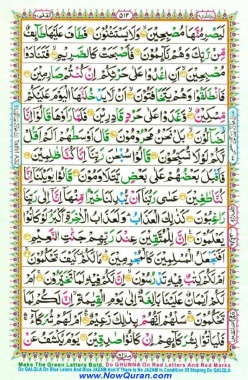 ٥١٣
لَيَصْرِمُنَّهَا مُصْبِحِينَ وَلَا يَسْتَثْنُونَ فَطَافَ عَلَيْهَا طَائِفٌ
مِّنْ رَّبِّكَ وَهُمْ نَائِمُونَ فَأَصْبَحَتْ كَالصَّرِيمِ فَتَنَادَوْا
مُصْبِحِينَ أَنِ اغْدُوا عَلَىٰ حَرْثِكُمْ إِنْ كُنْتُمْ صَارِمِينَ
فَانْطَلَقُوا وَهُمْ يَتَخَافَتُونَ أَنْ لَّا يَدْخُلَنَّهَا الْيَوْمَ عَلَيْكُمْ
مِّسْكِينٌ وَغَدَوْا عَلَىٰ حَرْدٍ قَادِرِينَ فَلَمَّا رَأَوْهَا قَالُوا إِنَّا
لَضَالُّونَ بَلْ نَحْنُ مَحْرُومُونَ قَالَ أَوْسَطُهُمْ أَلَمْ أَقُلْ
لَّكُمْ لَوْلَا تُسَبِّحُونَ قَالُوا سُبْحٰنَ رَبِّنَا إِنَّا كُنَّا ظَالِمِينَ
فَأَقْبَلَ بَعْضُهُمْ عَلَىٰ بَعْضٍ يَتَلَاوَمُونَ قَالُوا يَا وَيْلَنَا إِنَّا
كُنَّا طَاغِينَ عَسَىٰ رَبُّنَا أَنْ يُبْدِلَنَا خَيْرًا مِّنْهَا إِنَّا إِلَىٰ رَبِّنَا
رَاغِبُونَ كَذَٰلِكَ الْعَذَابُ وَلَعَذَابُ الْآخِرَةِ أَكْبَرُ لَوْ كَانُوا
يَعْلَمُونَ إِنَّ لِلْمُتَّقِينَ عِنْدَ رَبِّهِمْ جَنّٰتِ النَّعِيمِ
أَفَنَجْعَلُ الْمُسْلِمِينَ كَالْمُجْرِمِينَ مَا لَكُمْ كَيْفَ تَحْكُمُونَ
أَمْ لَكُمْ كِتٰبٌ فِيهِ تَدْرُسُونَ إِنَّ لَكُمْ فِيهِ لَمَا تَخَيَّرُونَ أَمْ
لَكُمْ أَيْمَانٌ عَلَيْنَا بَالِغَةٌ إِلَىٰ يَوْمِ الْقِيٰمَةِ إِنَّ لَكُمْ لَمَا
تَحْكُمُونَ سَلْهُمْ أَيُّهُمْ بِذَٰلِكَ زَعِيمٌ أَمْ لَهُمْ شُرَكَاءُ
فَلْيَأْتُوا بِشُرَكَائِهِمْ إِنْ كَانُوا صَادِقِينَ يَوْمَ يُكْشَفُ عَنْ
Make The Green Letters Bold, Do GHUNNA On Red Letters And Red Marks
www.NowQuran.com